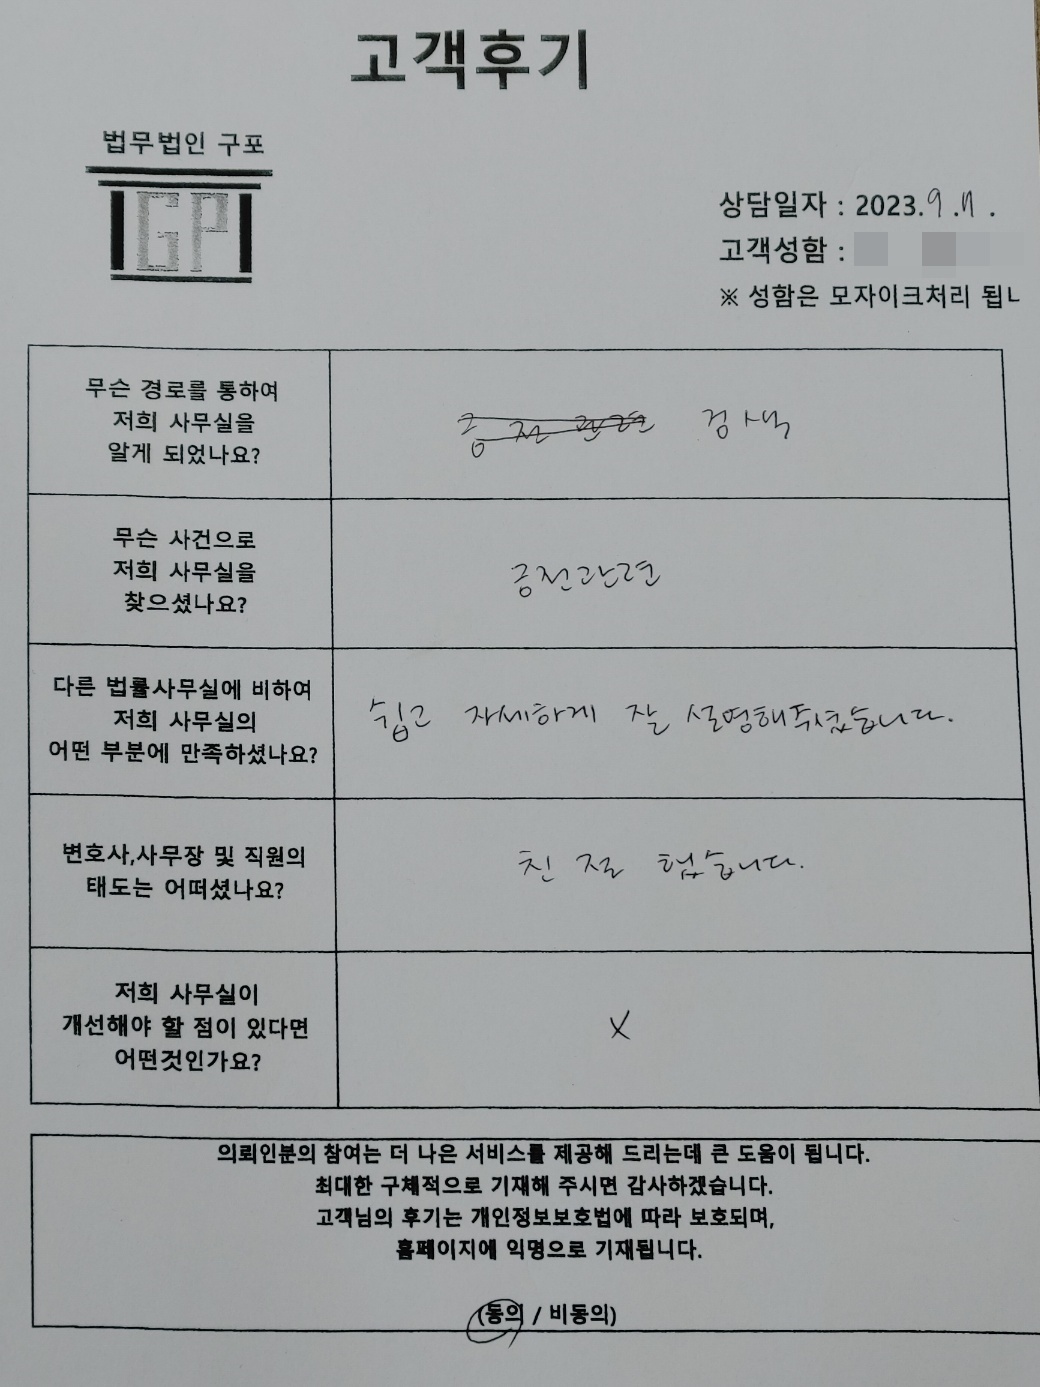 고객후기
법무법인 구포
GP
상담일자 : 2023.9.11.
고객성함 :
※ 성함은 모자이크처리 됩ㄴ
무슨 경로를 통하여
저희 사무실을
알게 되었나요?
금전 관련 검색
무슨 사건으로
저희 사무실을
찾으셨나요?
금전관련
다른 법률사무실에 비하여
저희 사무실의
어떤 부분에 만족하셨나요?
쉽고 자세하게 잘 설명해주셨습니다.
변호사,사무장 및 직원의
태도는 어떠셨나요?
친절 했습니다.
저희 사무실이
개선해야 할 점이 있다면
어떤것인가요?
X
의뢰인분의 참여는 더 나은 서비스를 제공해 드리는데 큰 도움이 됩니다.
최대한 구체적으로 기재해 주시면 감사하겠습니다.
고객님의 후기는 개인정보보호법에 따라 보호되며,
홈페이지에 익명으로 기재됩니다.
(동의 / 비동의)